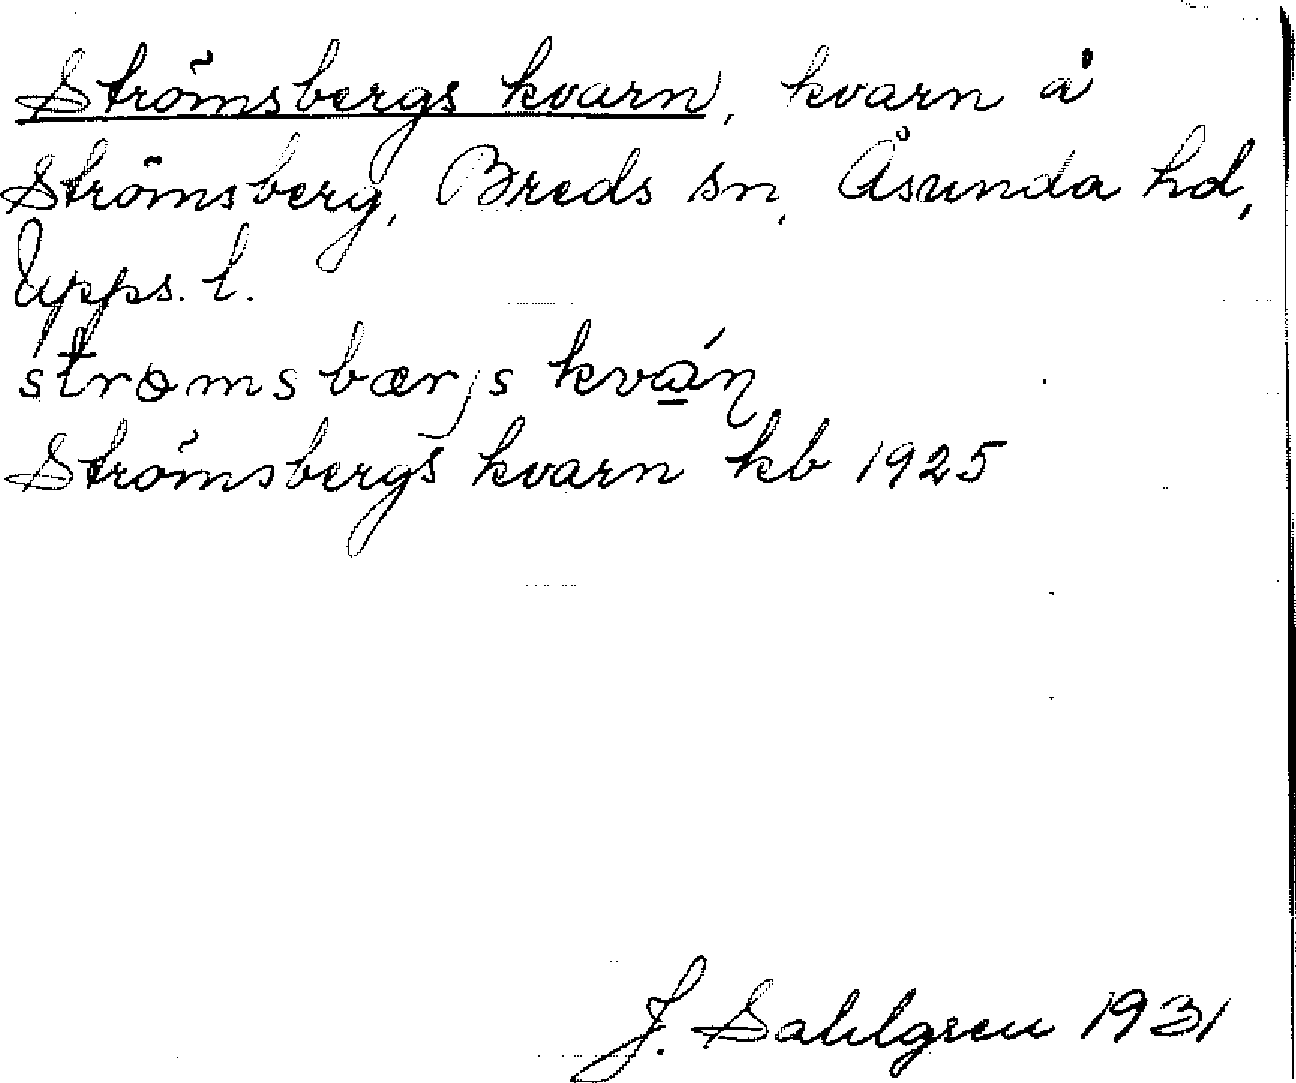 Strömsbergs kvarn, kvarn å
Strömsberg, Breds sn, Åsunda hd,
Upps. l.
strømsbærjs kváɳ
Strömsbergs kvarn kb 1925
J. Sahlgren 1931